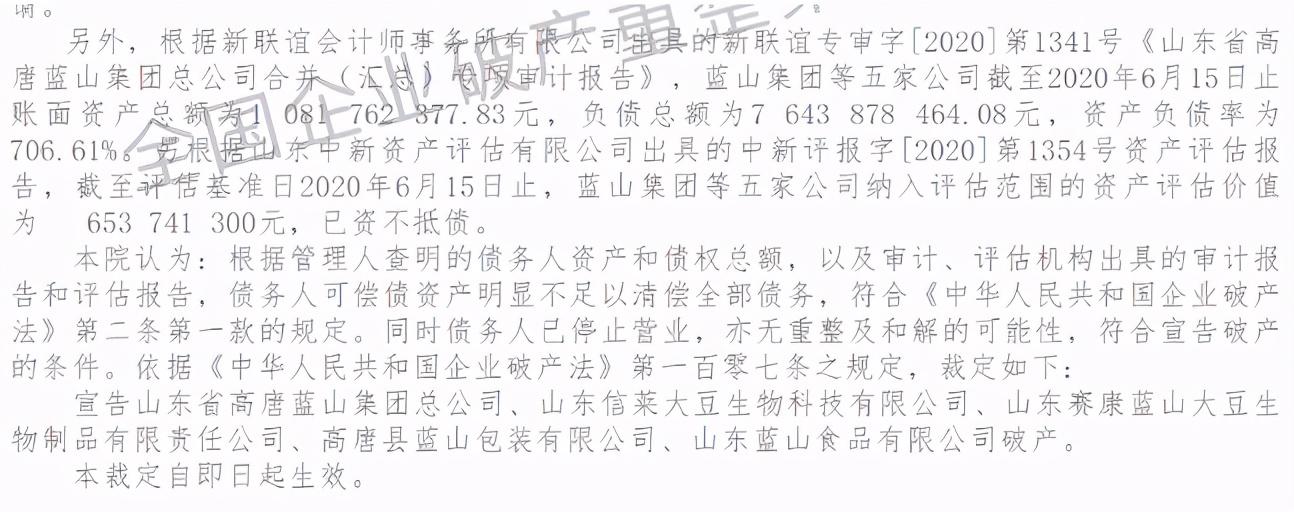 响。
另外，根据新联谊会计师事务所有限公司出具的新联谊专审字[2020]第1341号《山东省高
唐蓝山集团总公司合并（汇总）专项审计报告》，蓝山集团等五家公司截至2020年6月15日止
账面资产总额为1 081 762 377.83元，负债总额为7 643 878 464.08元，资产负债率为
706.61%。另根据山东中新资产评估有限公司出具的中新评报字[2020]第1354号资产评估报
告，截至评估基准日2020年6月15日止，蓝山集团等五家公司纳入评估范围的资产评估价值
为 653 741 300元，已资不抵债。
本院认为：根据管理人查明的债务人资产和债权总额，以及审计、评估机构出具的审计报
告和评估报告，债务人可偿债资产明显不足以清偿全部债务，符合《中华人民共和国企业破产
法》第二条第一款的规定。同时债务人已停止营业，亦无重整及和解的可能性，符合宣告破产
的条件。依据《中华人民共和国企业破产法》第一百零七条之规定，裁定如下：
宣告山东省高唐蓝山集团总公司、山东信莱大豆生物科技有限公司、山东赛康蓝山大豆生
物制品有限责任公司、高唐县蓝山包装有限公司、山东蓝山食品有限公司破产。
本裁定自即日起生效。
全国企业破产重整